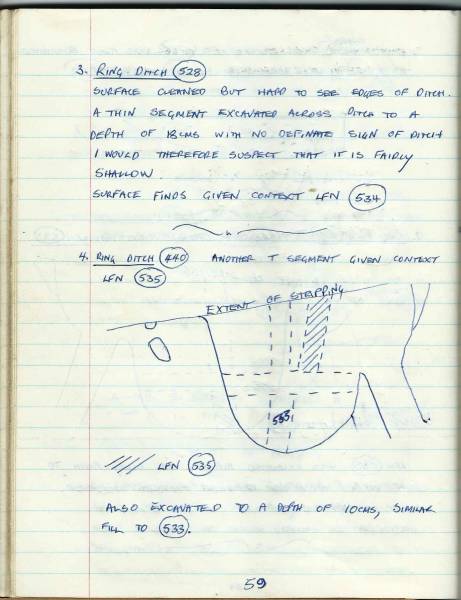 3. RING DITCH (528)
SURFACE CLEANED BUT HARD TO SEE EDGES OF DITCH.
A THIN SEGMENT EXCAVATED ACROSS DITCH TO A
DEPTH OF 18CMS WITH NO DEFINATE SIGN OF DITCH
I WOULD THEREFORE SUSPECT THAT IT IS FAIRLY
SHALLOW.
SURFACE FINDS GIVEN CONTEXT LFN (534)
4. RING DITCH (440) ANOTHER T SEGMENT GIVEN CONTEXT
LFN (535)
EXTENT OF STRIPPING
533
LFN (535)
ALSO EXCAVATED TO A DEPTH OF 10CMS, SIMILAR
FILL TO (533).
59